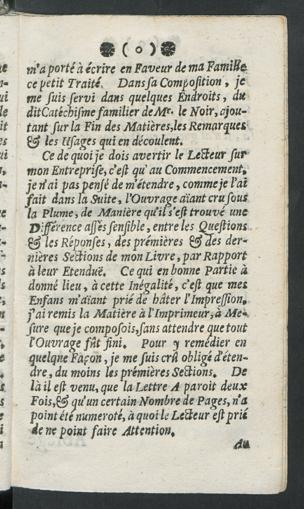 ( o )
m'a porté à écrire en Faveur de ma Famille
ce petit Traité. Dans sa Composition, je
me suis servi dans quelques Endroits, du
dit Catéchisme familier de Mr. le Noir, ajou-
tant sur la Fin des Matières, les Remarques
& les Usages qui en découlent.
Ce de quoi je dois avertir le Lecteur sur
mon Entreprise, c'est qu'au Commencement,
je n'ai pas pensé de m'étendre, comme je l'ai
fait dans la Suite, l'Ouvrage aïant cru sous
la Plume, de Manière qu'il s'est trouvé une
Différence assés sensible, entre les Questions
& les Réponses, des prémières & des der-
nières Sections de mon Livre, par Rapport
à leur Etenduë. Ce qui en bonne Partie à
donné lieu, à cette Inégalité, c'est que mes
Enfans m'aïant prié de hâter l'Impression,
j'ai remis la Matière à l'Imprimeur, à Me-
sure que je composois, sans attendre que tout
l'Ouvrage fût fini. Pour y remédier en
quelque Façon, je me suis crû obligé d'éten-
dre, du moins les prémières Sections. De
là il est venu, que la Lettre A paroit deux
Fois, & qu'un certain Nombre de Pages, n'a
point été numeroté, à quoi le Lecteur est prié
de ne point faire Attention.
Au